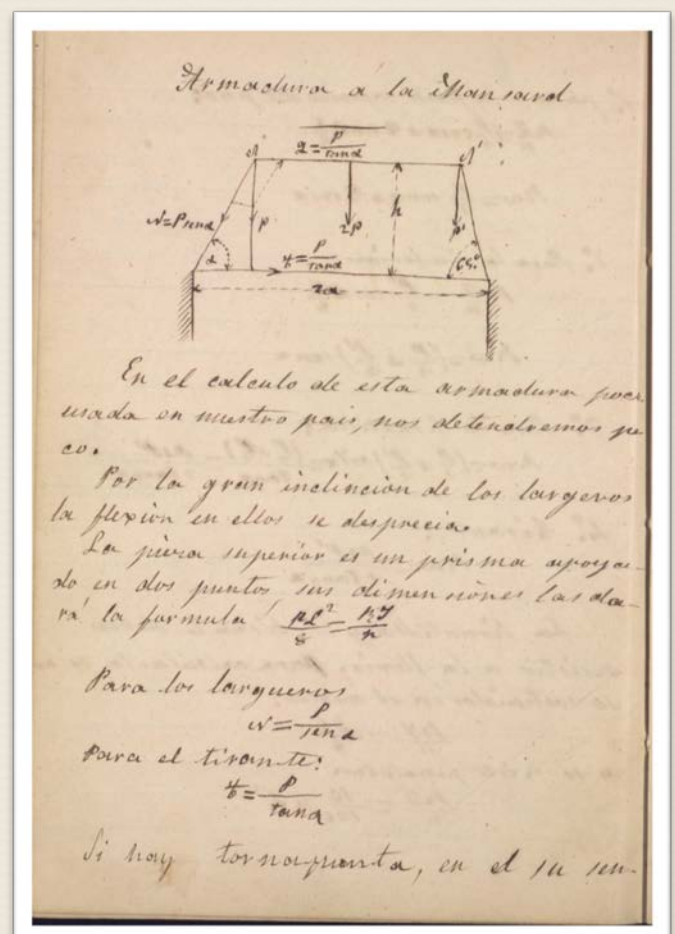 Armadura a la Mansard
A
Q = P/tan α
A'
N = P sen α
P
2P
h
P'
α
t = P/tan α
65°
2a
En el calculo de esta armadura poco
usada en nuestro pais, nos detendremos po
co.
Por la gran inclinción de los largeros
la flexión en ellos se desprecia.
La pieza superior es un prisma apoya-
do en dos puntos, sus dimensiónes las da-
rá la formula pL²/8 = RI/n
Para los largueros
N = P/sen α
Para el tirante:
t = P/tan α
Si hay tornapunta, en el su sen-